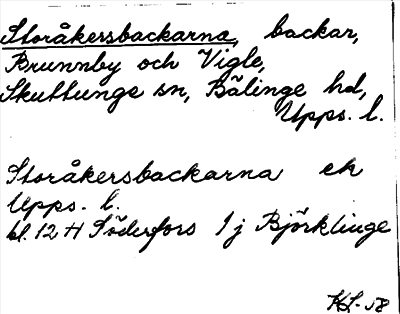 Storåkersbackarna, backar,
Brunnby och Vigle,
Skuttunge sn, Bälinge hd,
Upps. l.
Storåkersbackarna ek
Upps. l.
bl. 12 H Söderfors 1 j Björklinge